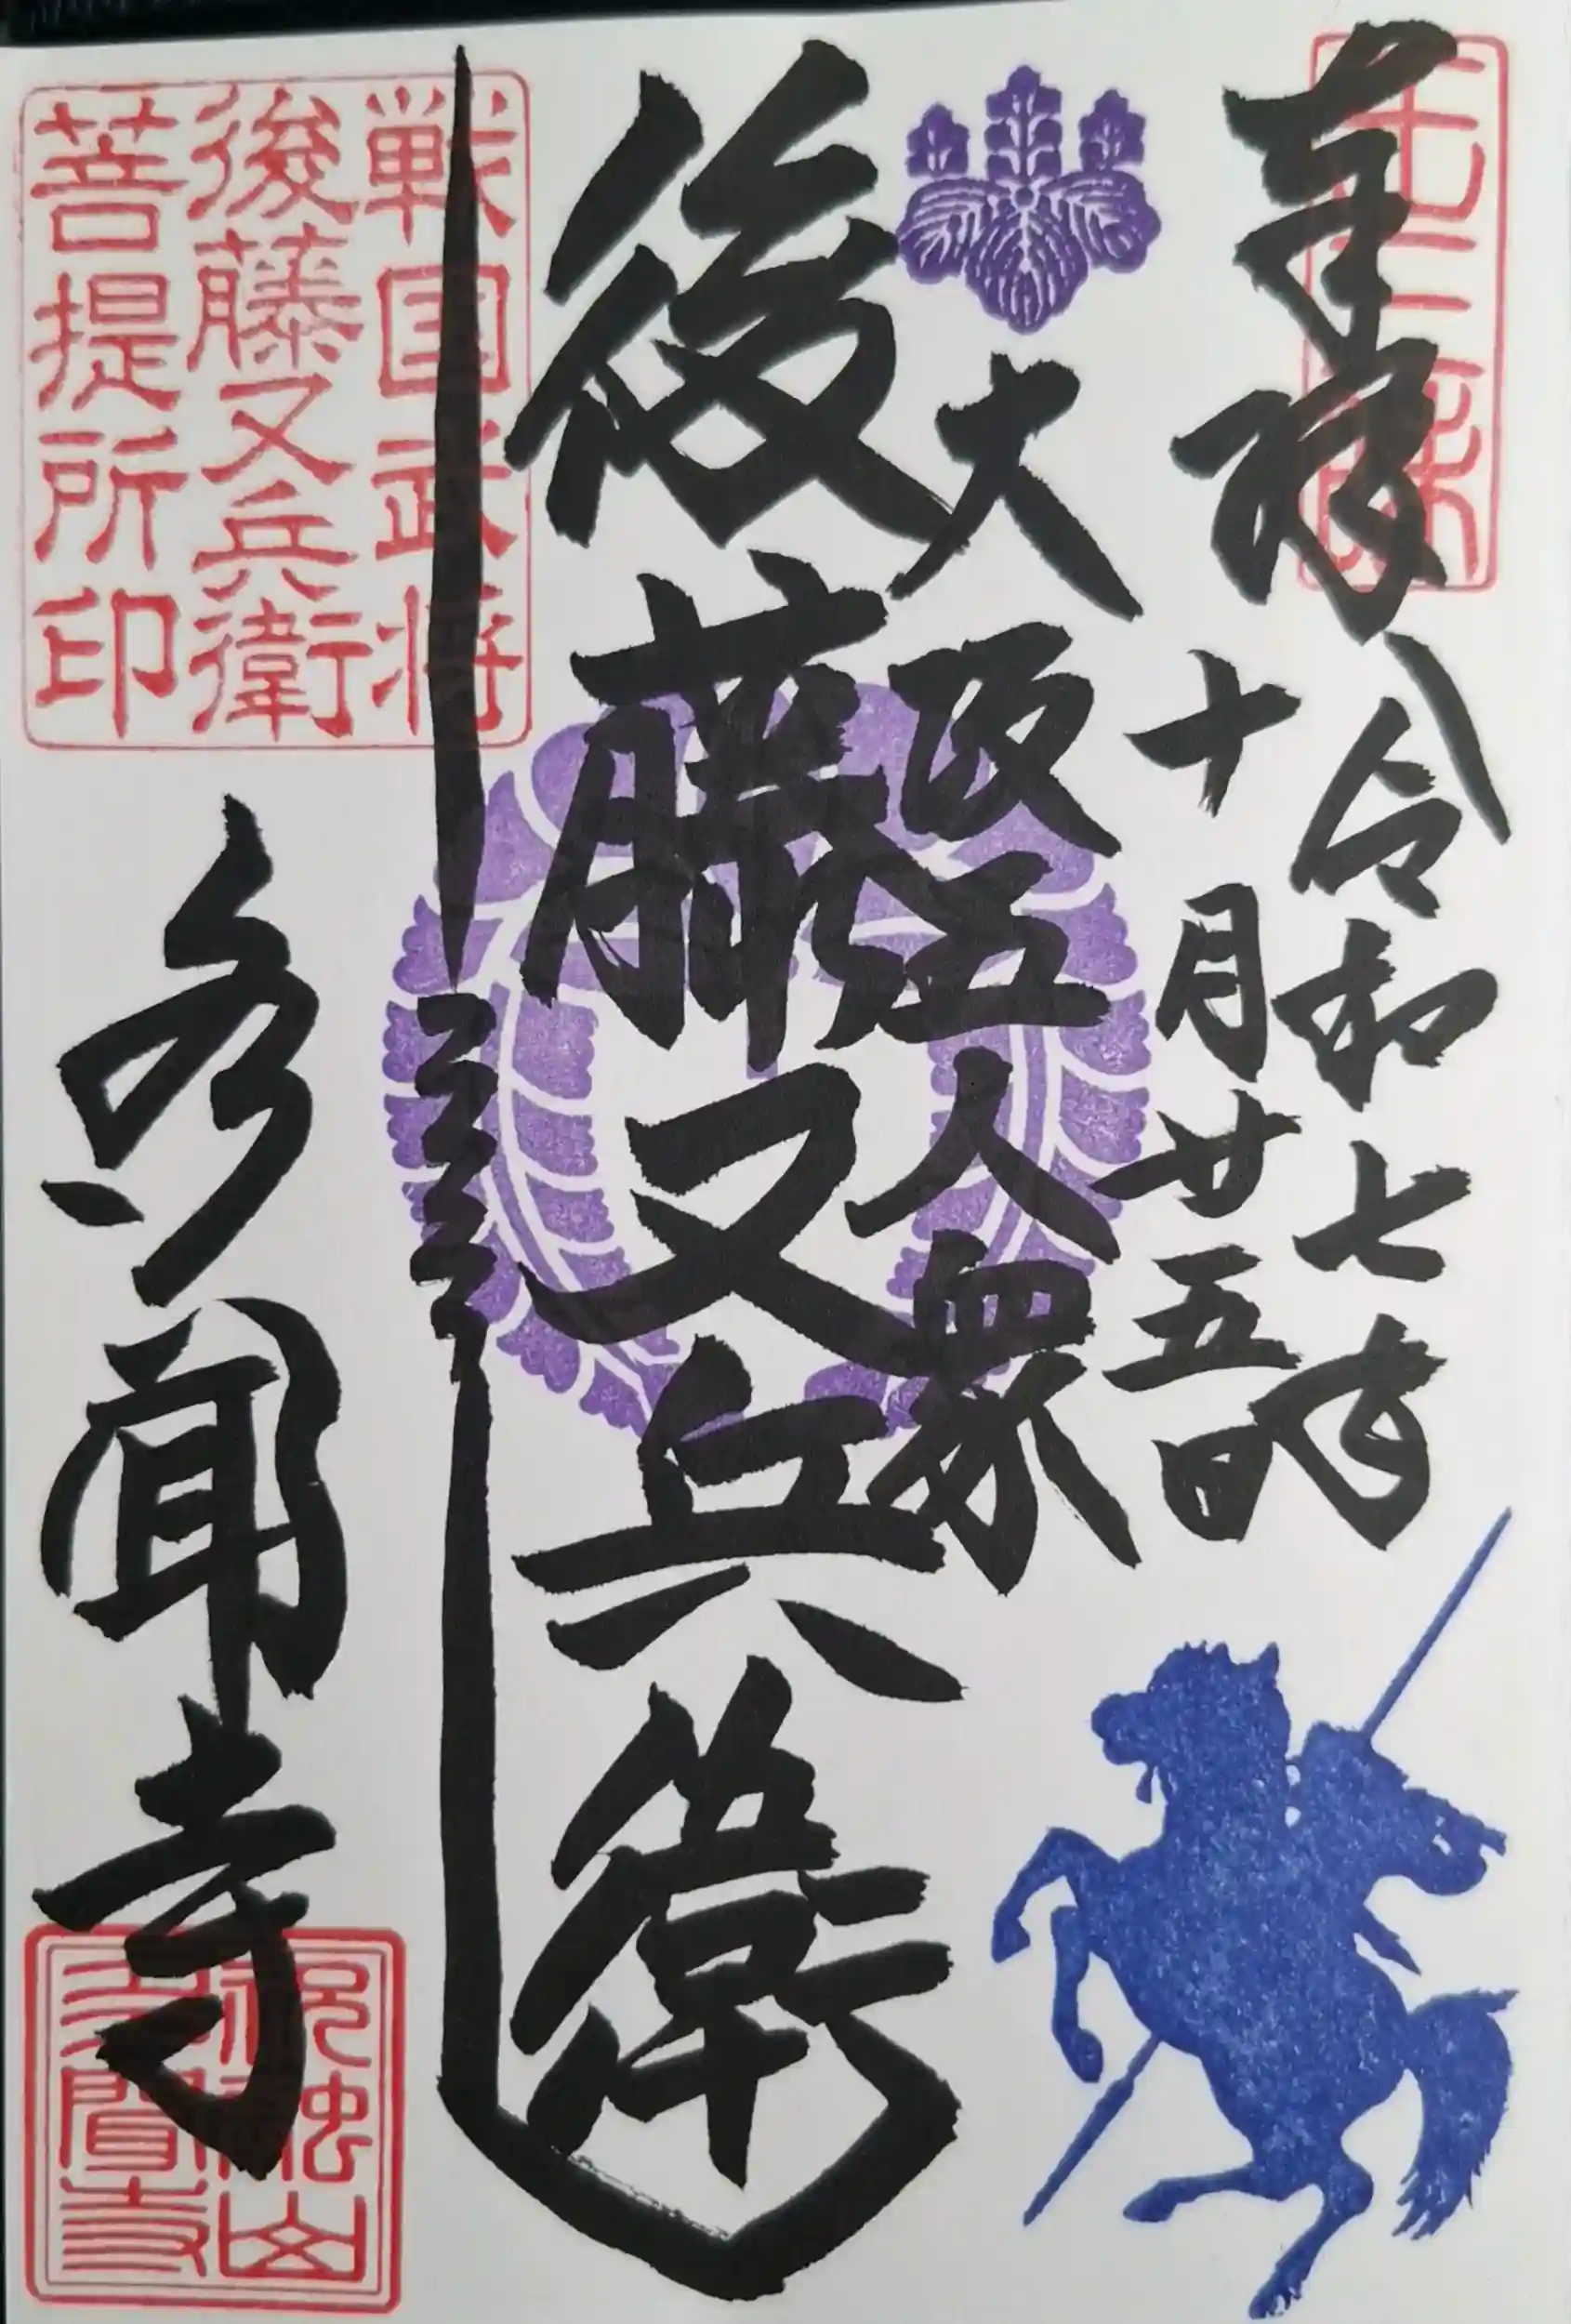 奉拝
令和七年
十月廿五日
大阪五人衆
後藤又兵衛
戦国武将
後藤又兵衛
菩提所印
多聞寺
多聞寺